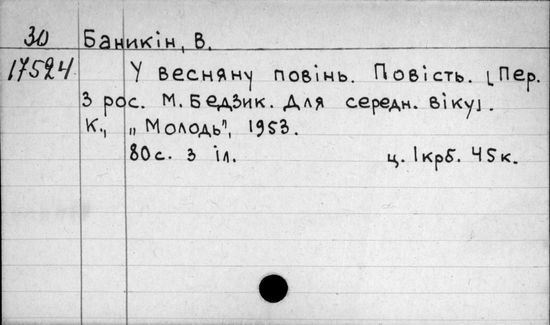 30 Баникін, В.
17524 У весняну повінь. Повість. [Пер.
з рос. М. Бедзик. Для середн. віку].
К., „Молодь", 1953.
80с. з іл. ц. 1крб. 45к.